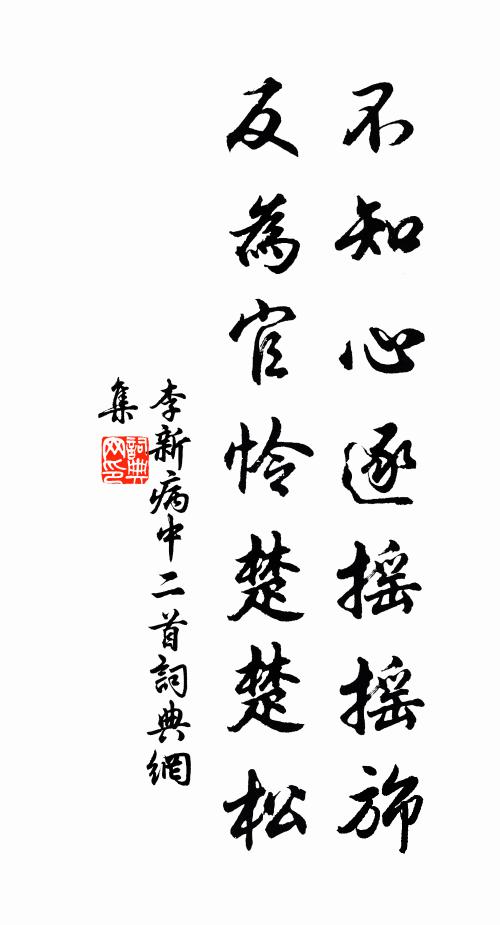 不知心逐摇摇斾
反為官怜楚楚松
李新病中二首詞典網
集
詞典
网印